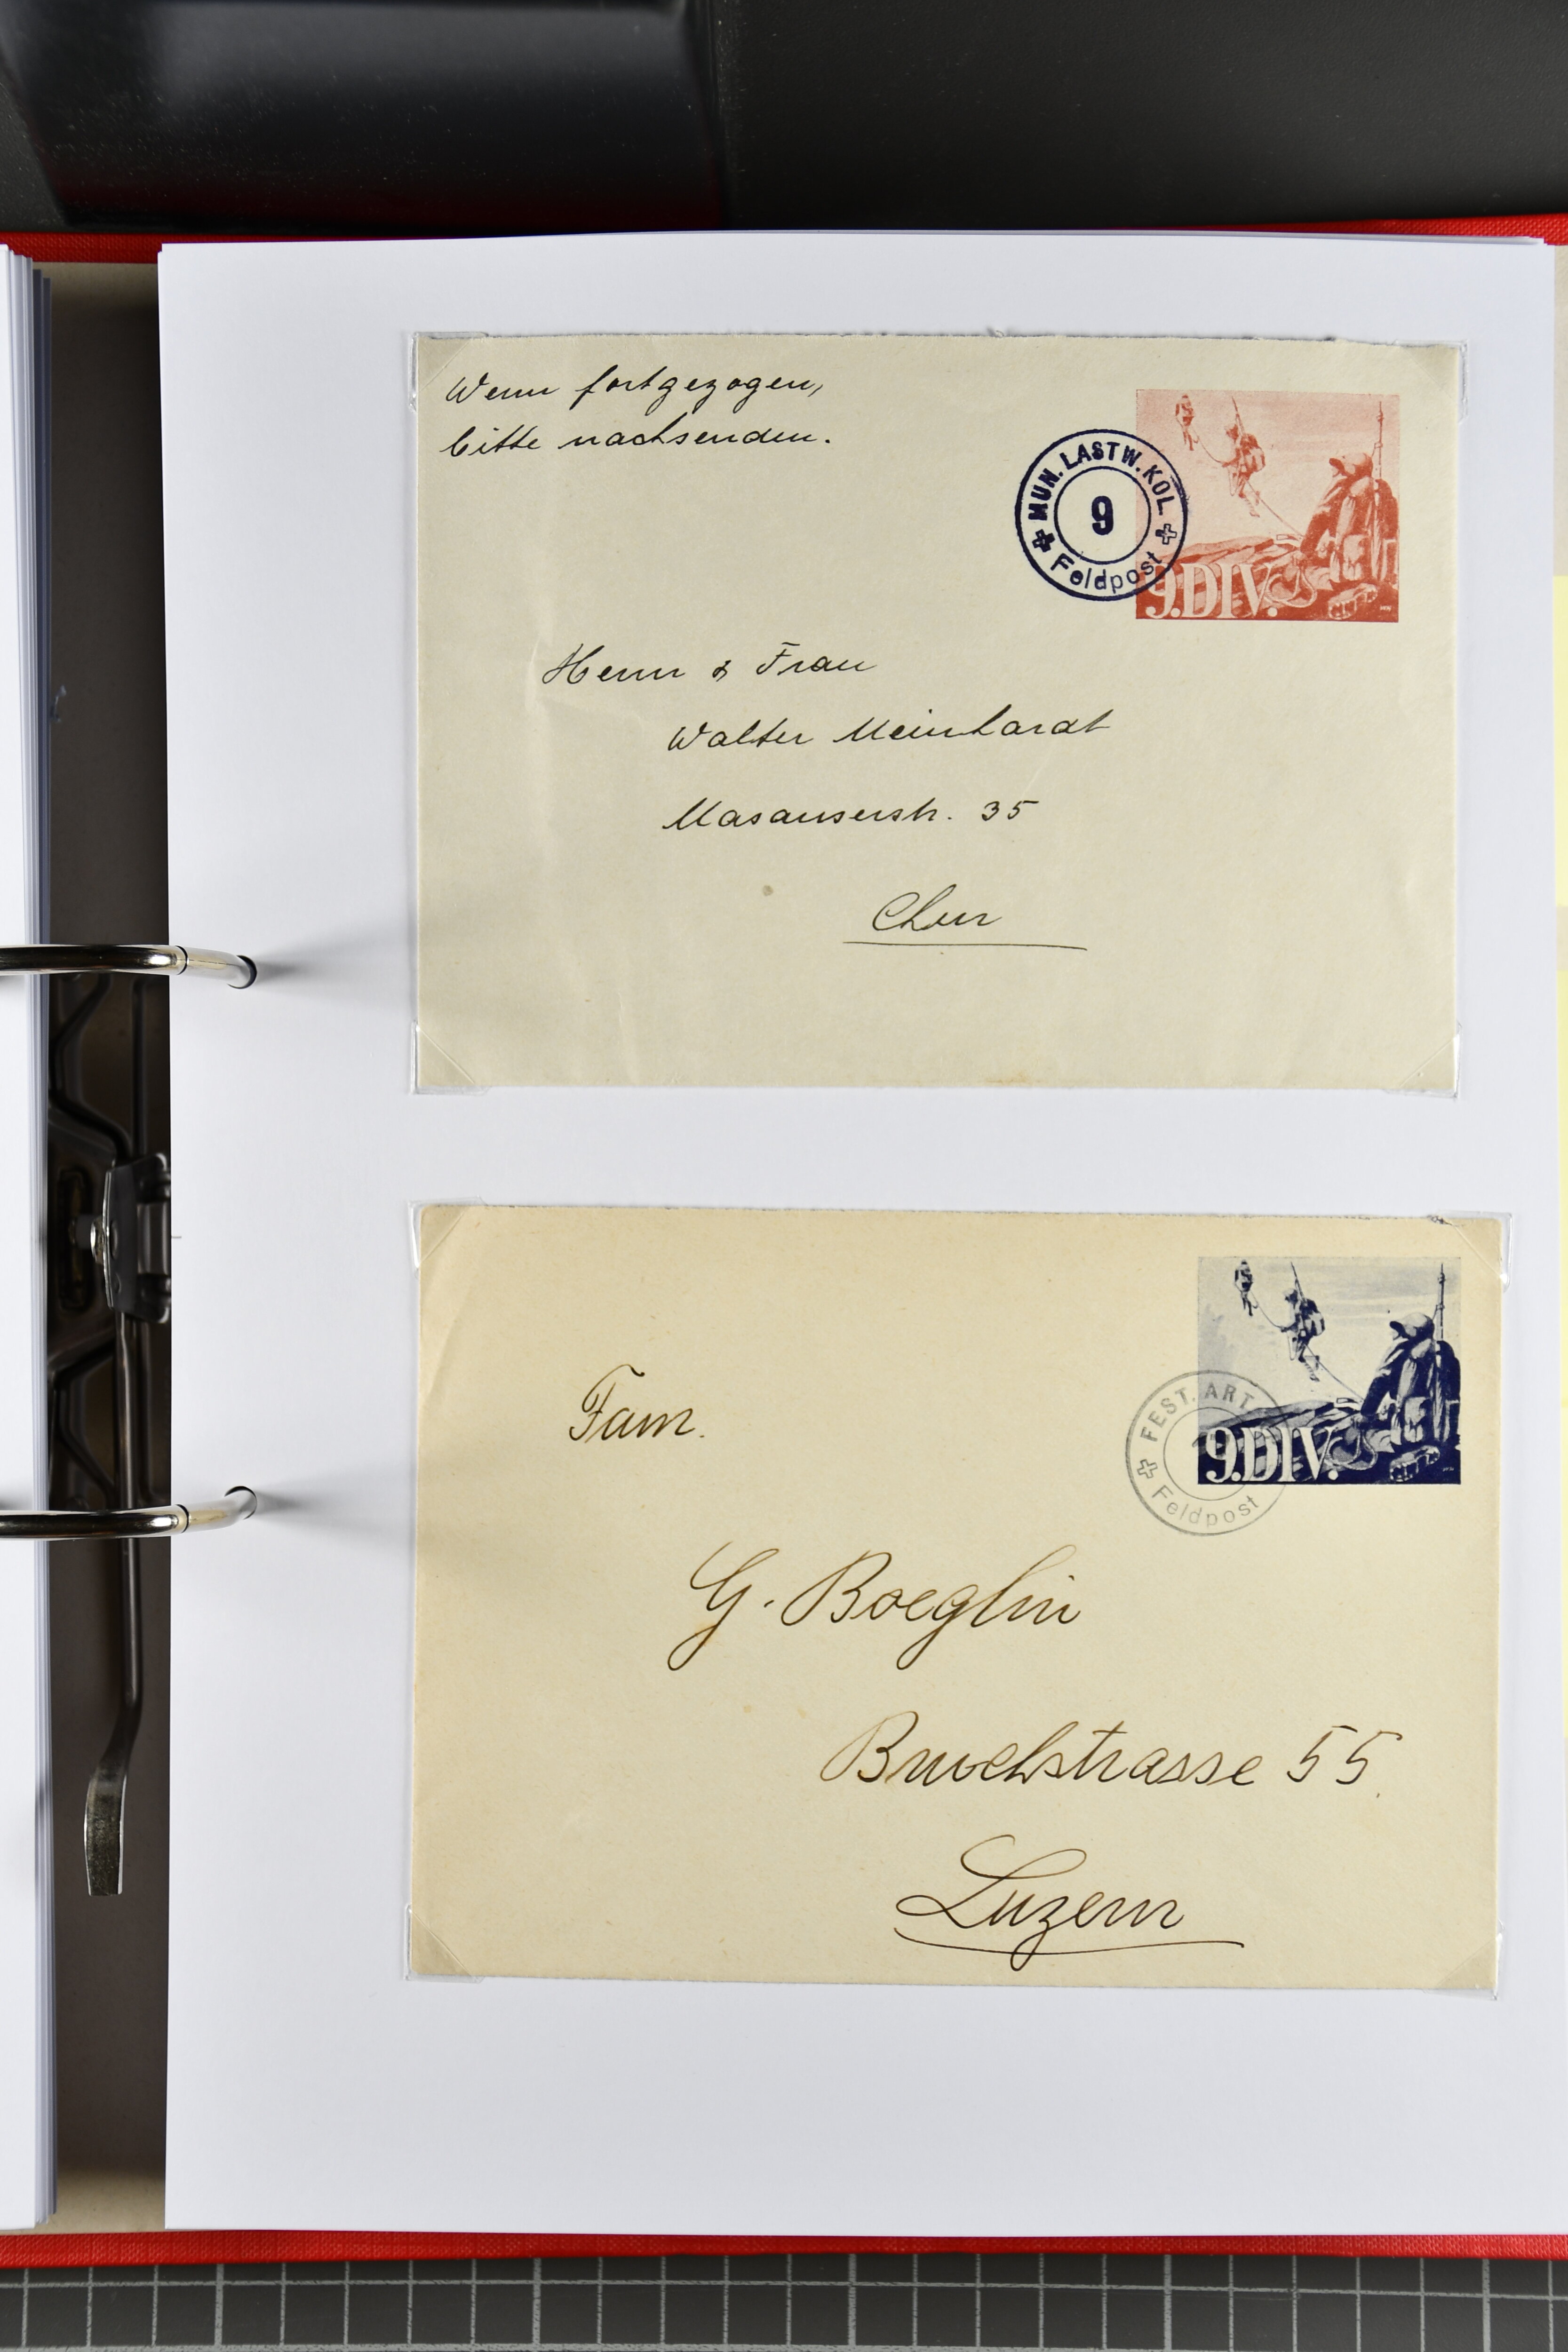 Wenn fortgezogen,
bitte nachsenden.
MUN. LASTW. KOL.
9
Feldpost
9.DIV.
Herrn & Frau
Walter Meinhardt
Masanserstr. 35
Chur
FEST. ART.
Feldpost
9.DIV.
Fam.
G. Boeglin
Bruchstrasse 55.
Luzern